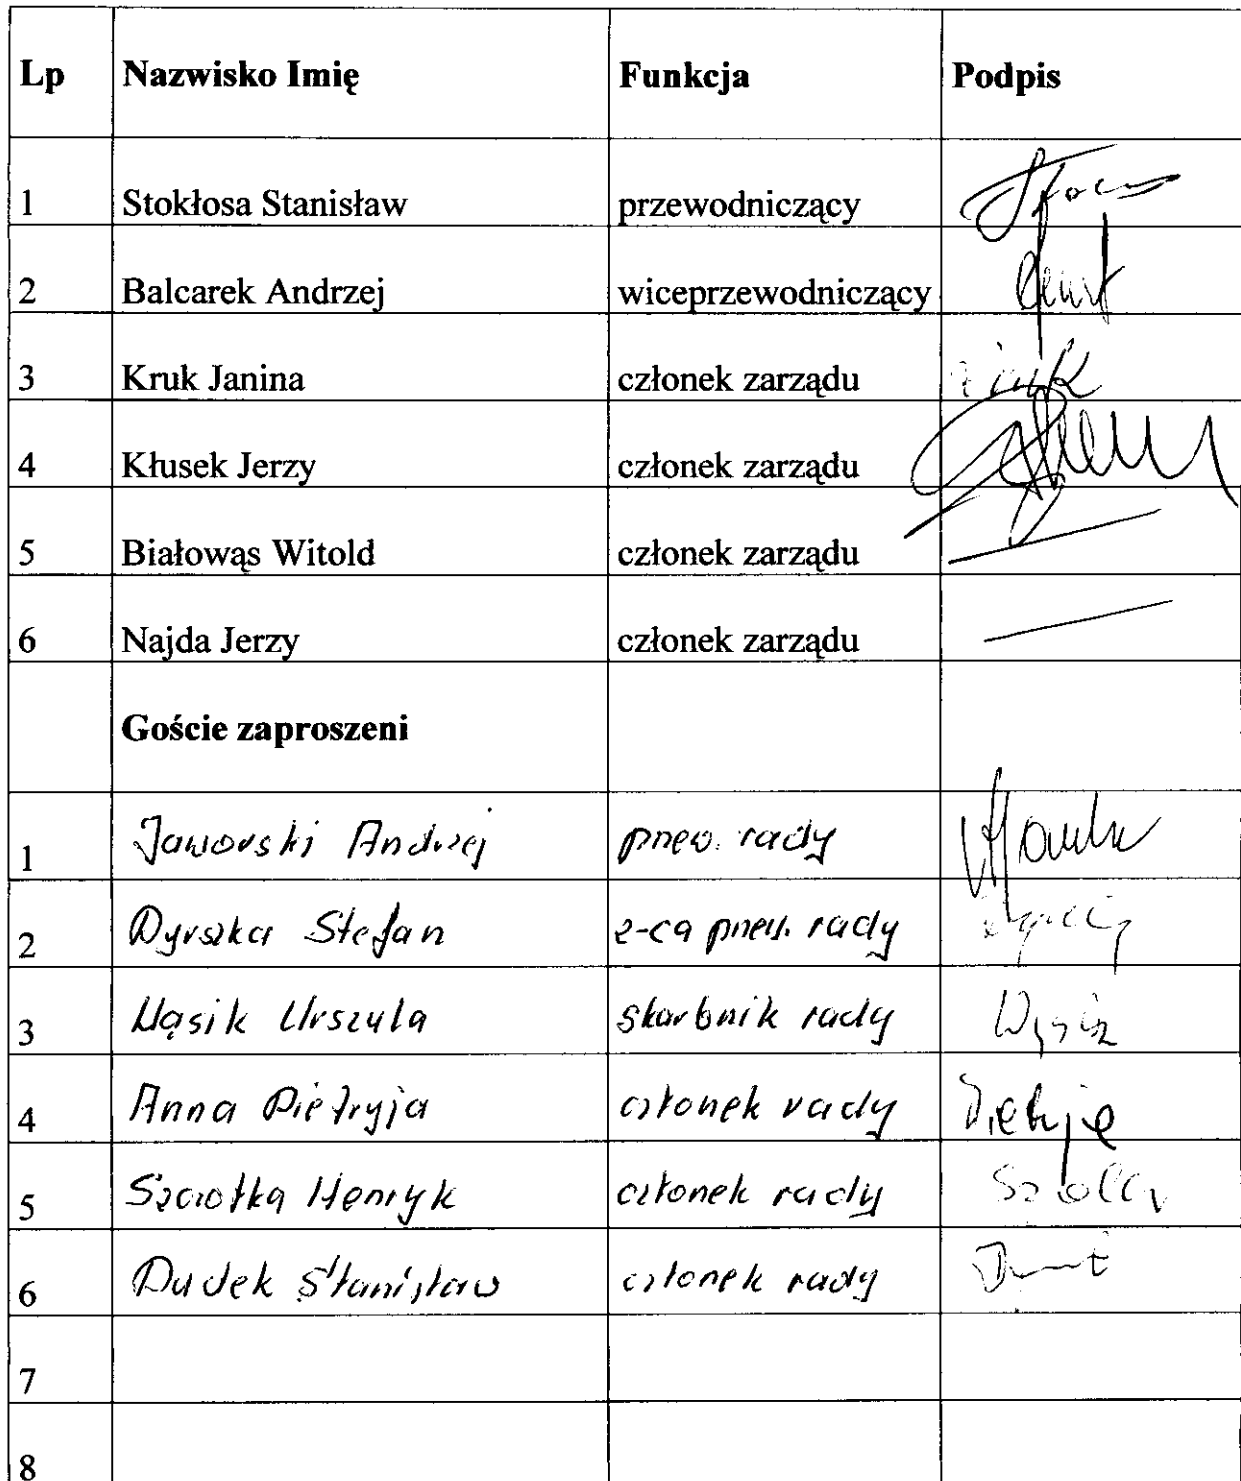 Lp Nazwisko Imię Funkcja Podpis
1 Stokłosa Stanisław przewodniczący
2 Balcarek Andrzej wiceprzewodniczący
3 Kruk Janina członek zarządu
4 Kłusek Jerzy członek zarządu
5 Białowąs Witold członek zarządu
6 Najda Jerzy członek zarządu
Goście zaproszeni
1 Jaworski Andrzej przew. rady
2 Dyrszka Stefan z-ca przew. rady
3 Wąsik Urszula skarbnik rady
4 Anna Pietryja członek rady
5 Szczotka Henryk członek rady
6 Dudek Stanisław członek rady
7
8